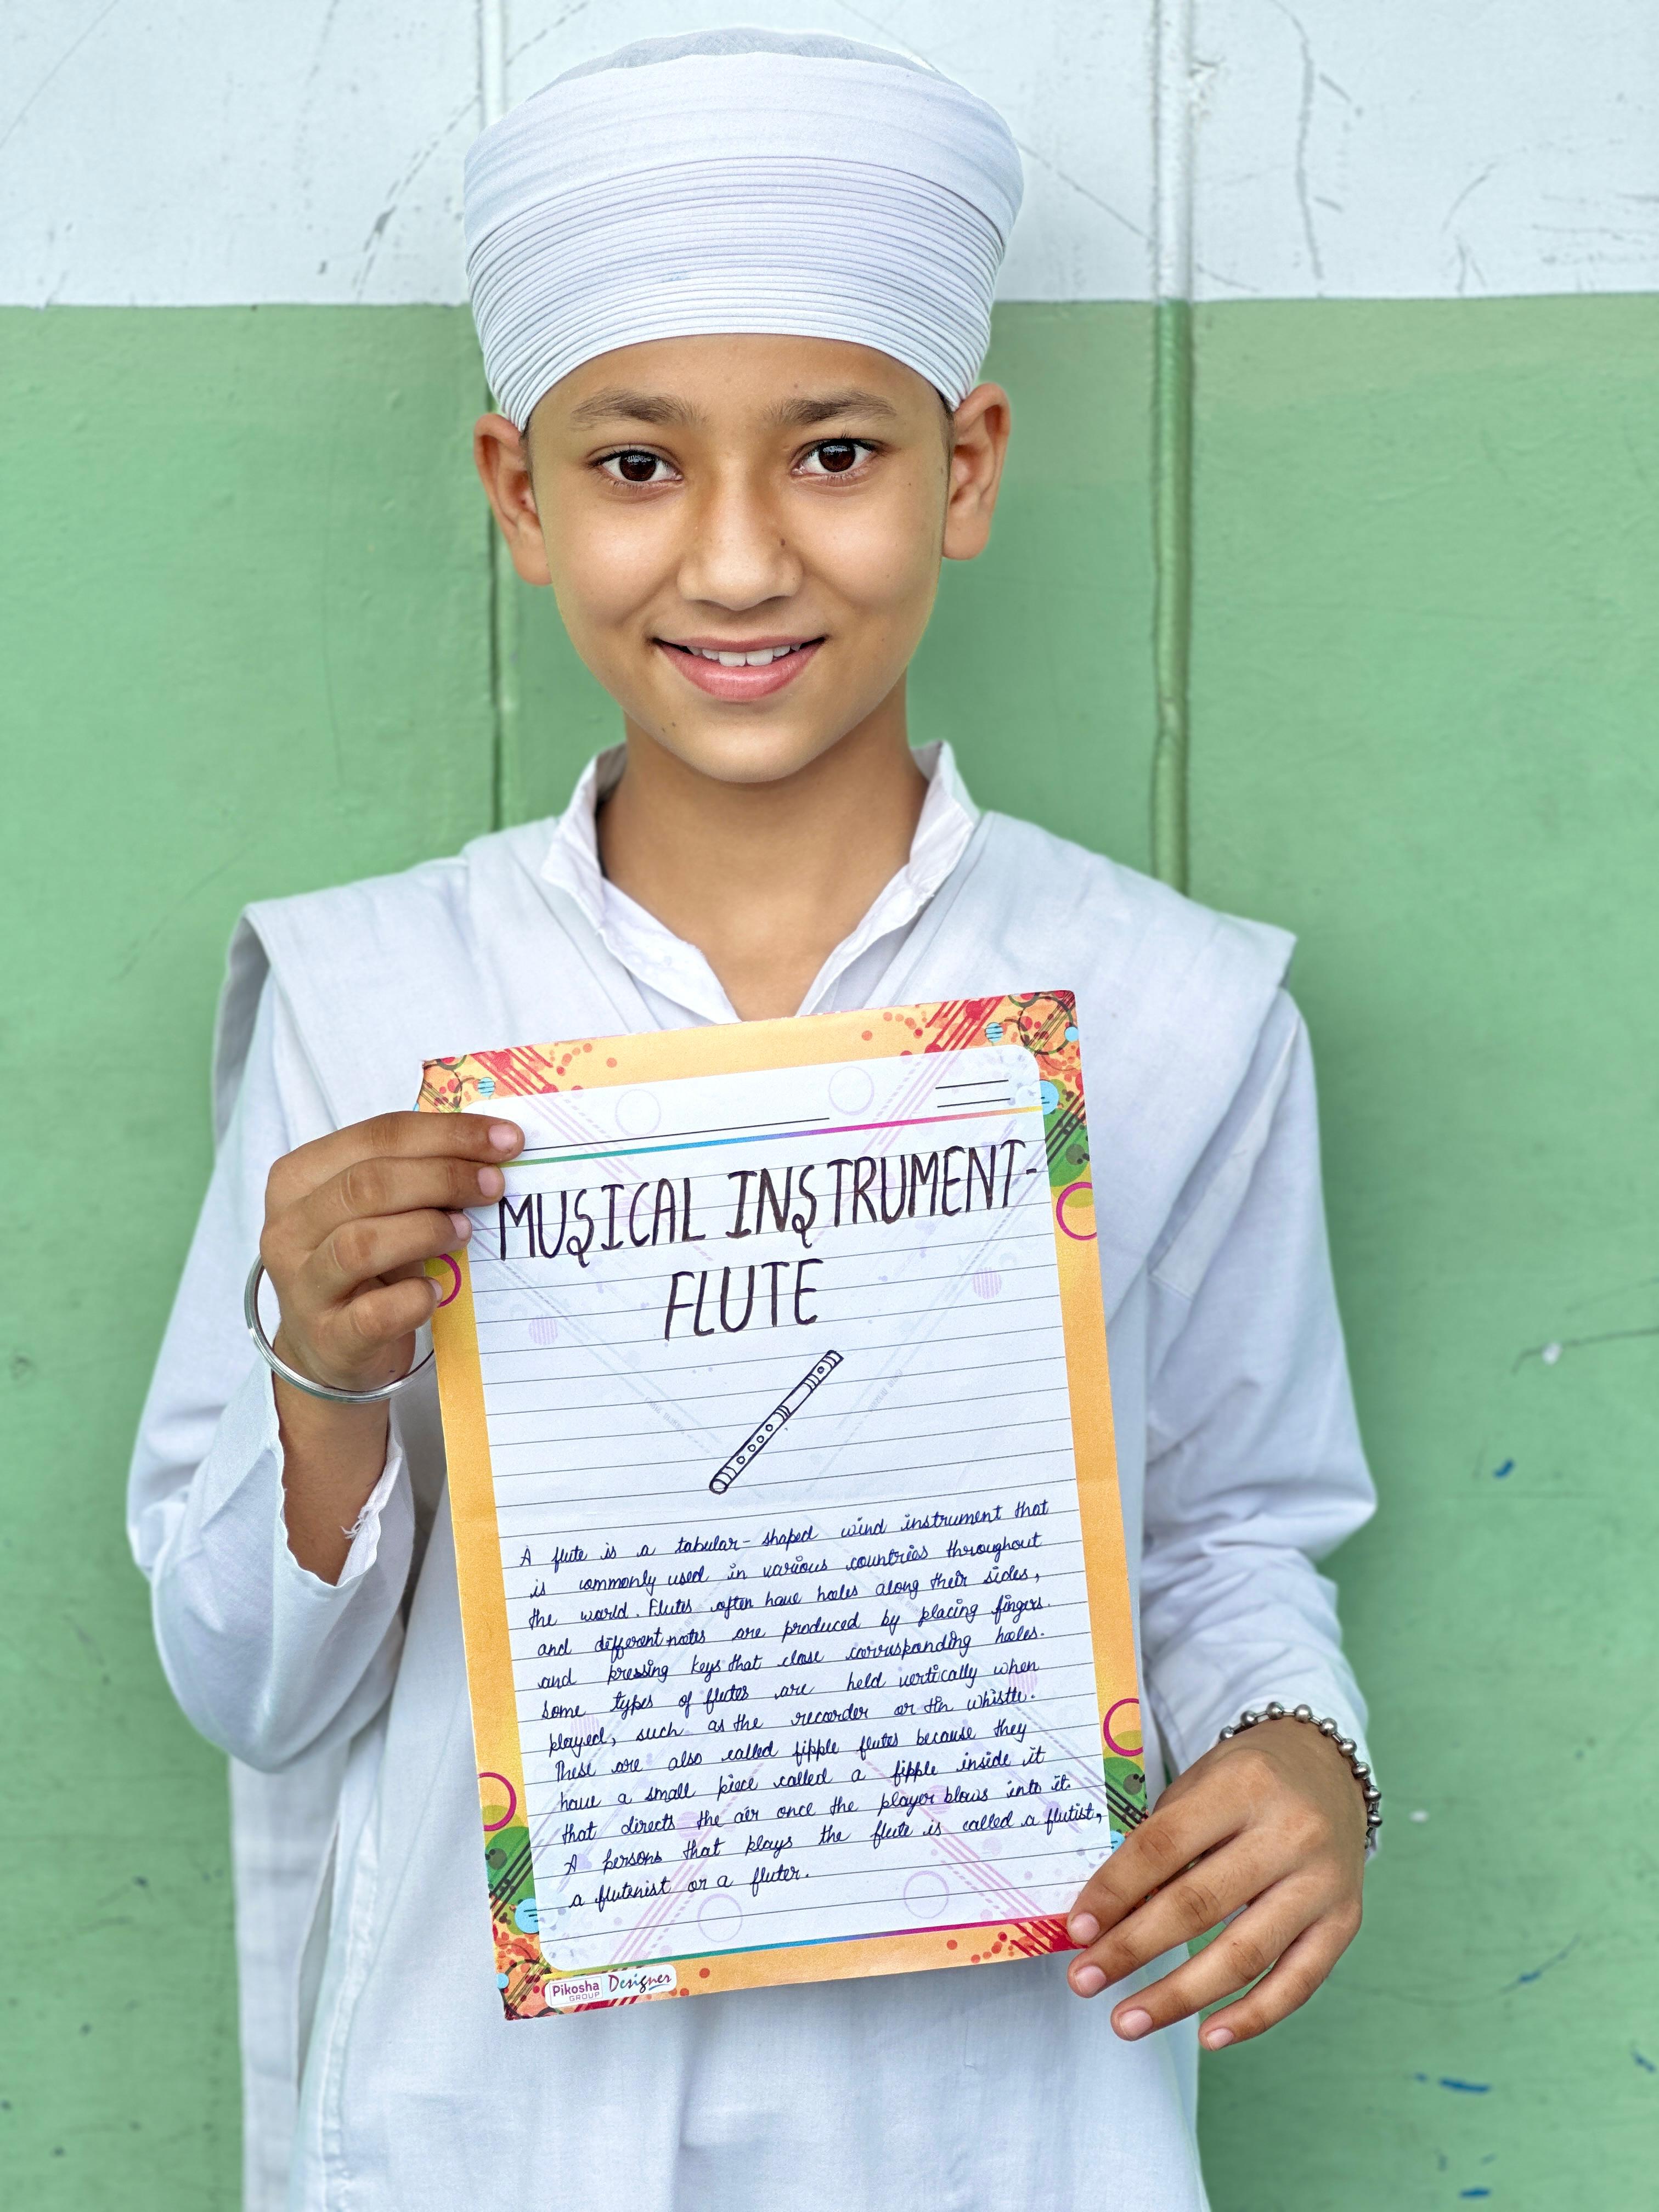 MUSICAL INSTRUMENT-
FLUTE
A flute is a tabular-shaped wind instrument that
is commonly used in various countries throughout
the world. Flutes often have holes along their sides,
and different notes are produced by placing fingers.
and pressing keys that close corresponding holes.
Some types of flutes are held vertically when
played, such as the recorder or tin whistle.
These are also called fipple flutes because they
have a small piece called a fipple inside it
that directs the air once the player blows into it.
A persons that plays the flute is called a flutist,
a flutenist or a fluter.
Pikosha GROUP Designer